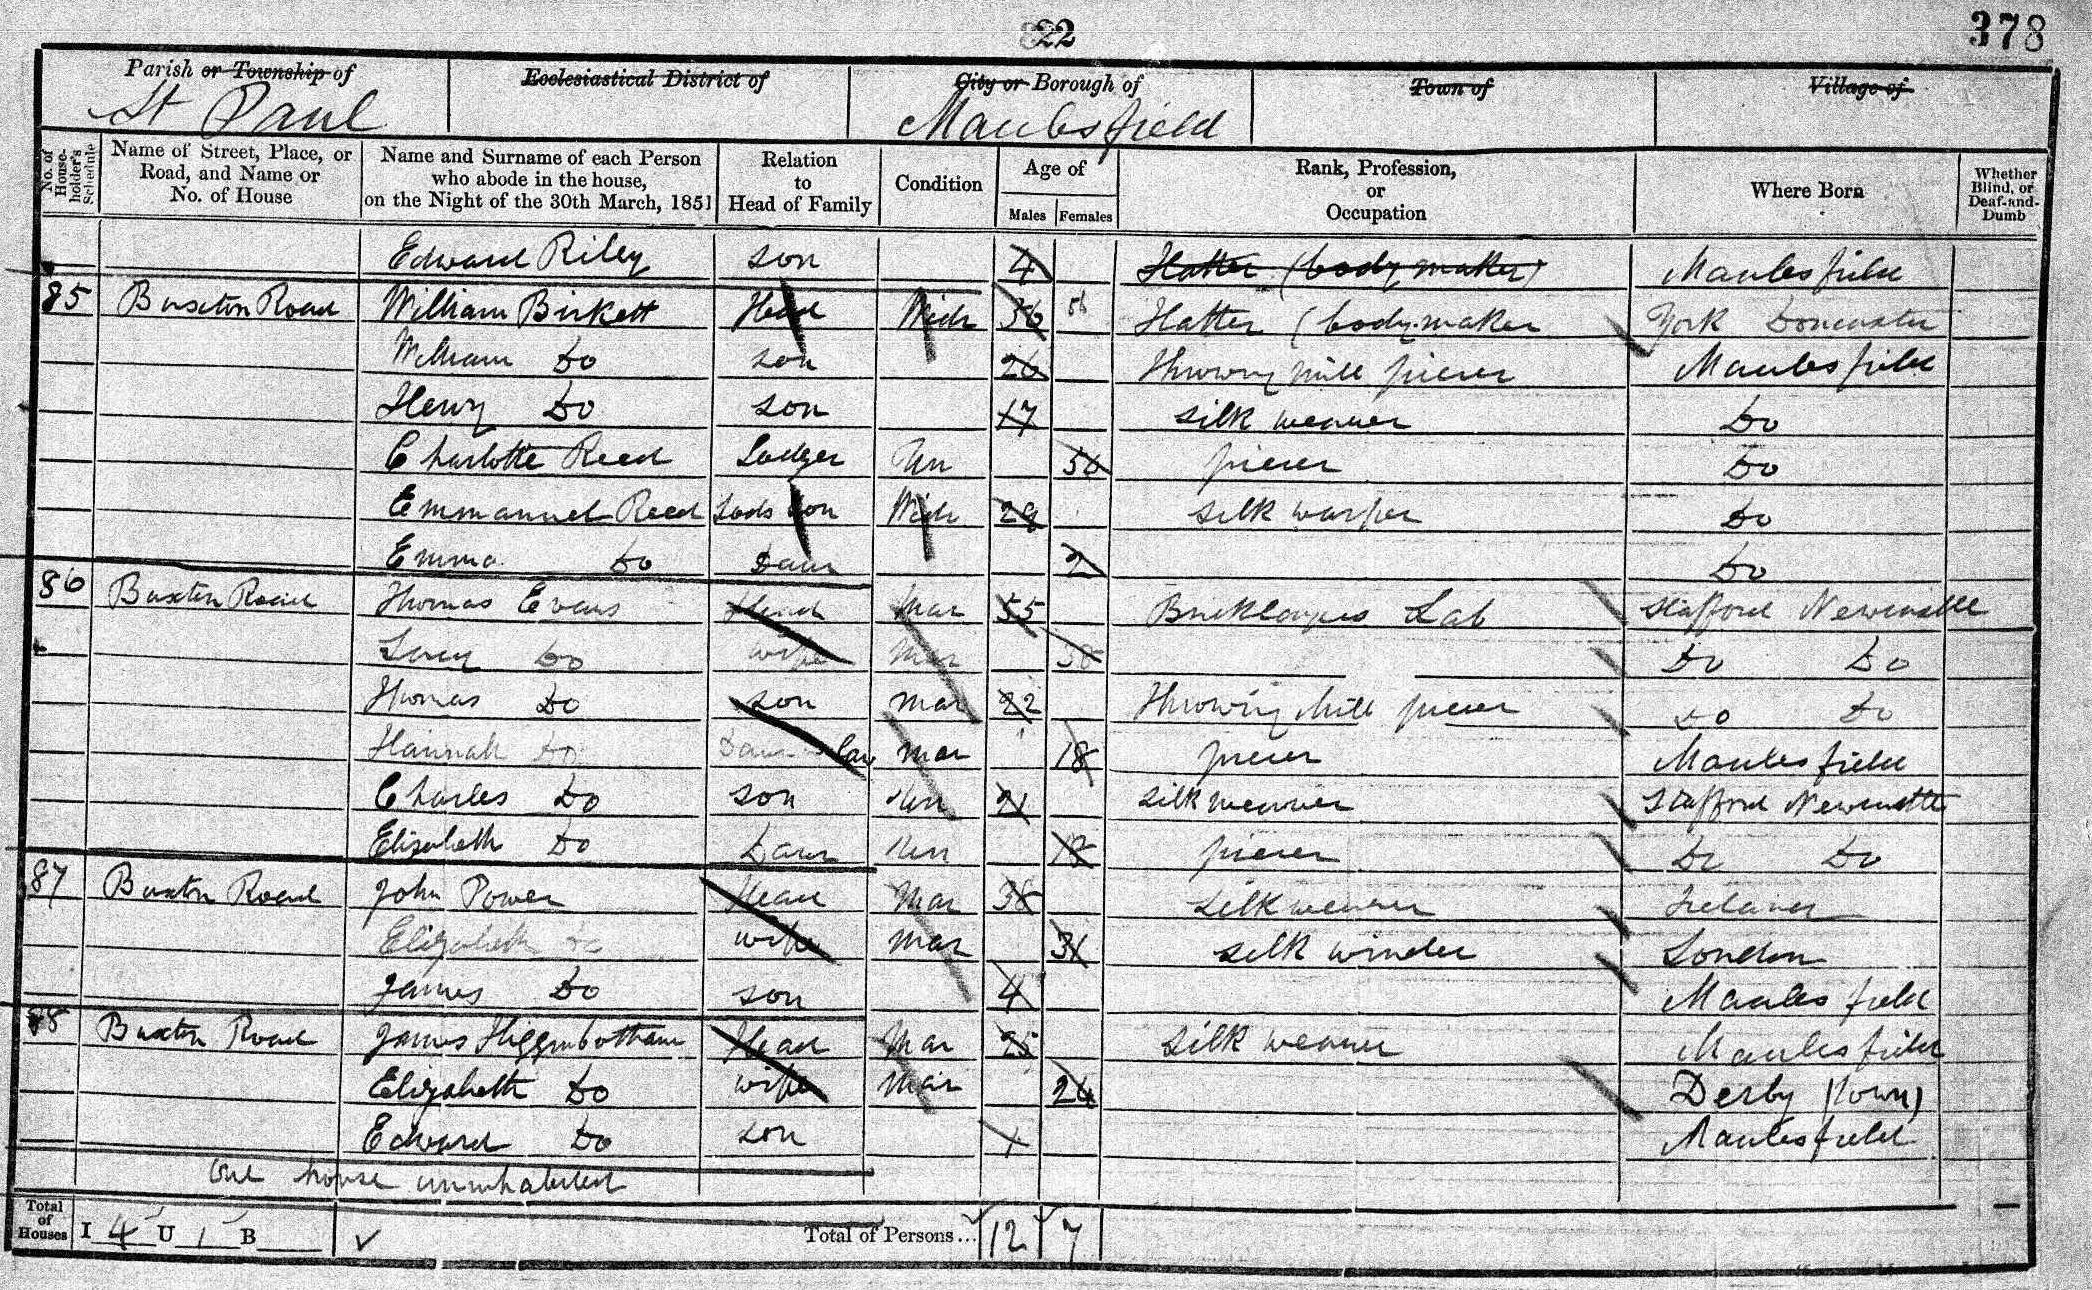 22
378
Parish or Township of
Ecclesiastical District of
City or Borough of
Town of
Village of
St Paul
Macclesfield
No. of House-holder's Schedule
Name of Street, Place, or Road, and Name or No. of House
Name and Surname of each Person who abode in the house, on the Night of the 30th March, 1851
Relation to Head of Family
Condition
Age of
Males
Females
Rank, Profession, or Occupation
Where Born
Whether Blind, or Deaf-and-Dumb
Edward Riley son 4 Hatter (body maker) Macclesfield
85 Buxton Road William Birkett Head Widr 56 56 Hatter (body maker York Doncaster
William Do son 26 Throwing mill piecer Macclesfield
Henry Do son 17 silk weaver Do
Charlotte Reed Lodger Un 56 piecer Do
Emmanuel Reed Lods son Widr 29 silk warper Do
Emma Do Daur 2 Do
86 Buxton Road Thomas Evans Head Mar 55 Bricklayers Lab Stafford Newcastle
Lucy Do wife Mar 58 Do Do
Thomas Do son mar 22 Throwing Mill piecer Do Do
Hannah Do Daur law mar 18 piecer Macclesfield
Charles Do son Un 21 silk weaver Stafford Newcastle
Elizabeth Do Daur Un 18 piecer Do Do
87 Buxton Road John Power Head Mar 38 silk weaver Ireland
Elizabeth Do wife mar 31 silk winder London
James Do son 4 Macclesfield
88 Buxton Road James Higginbotham Head Mar 25 silk weaver Macclesfield
Elizabeth Do wife Mar 24 Derby (town)
Edward Do son 1 Macclesfield
one house uninhabited
Total of Houses I 4 U 1 B
Total of Persons... 12 7